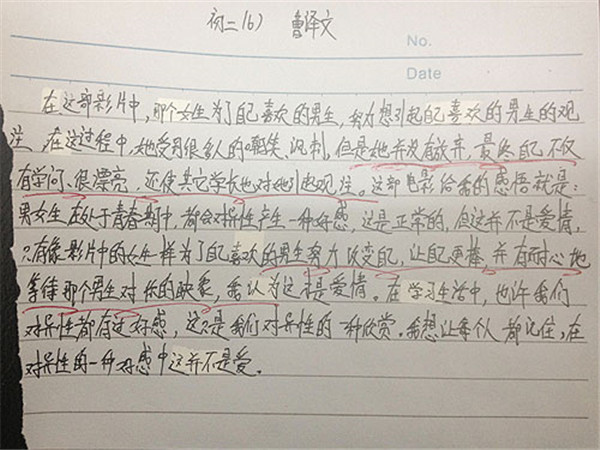 初二(6) 曹译文
No.
Date
在这部影片中,那个女生为了自己喜欢的男生,努力想引起自己喜欢的男生的观
注,在这过程中,她受到很多人的嘲笑、讽刺,但是她并没有放弃,最终自己不仅
有学问、很漂亮,还使其它学长也对她引起观注。这部电影给我的感悟就是:
男女生在处于青春期中,都会对异性产生一种好感,这是正常的,但这并不是爱情,
只有像影片中的女生一样为了自己喜欢的男生努力改变自己,让自己更棒,并有耐心地
等待那个男生对你的映象,我认为这才是爱情。在学习生活中,也许我们
对异性都有过好感,这只是我们对异性的一种欣赏。我想让每个人都记住,在
对异性的一种好感中这并不是爱。